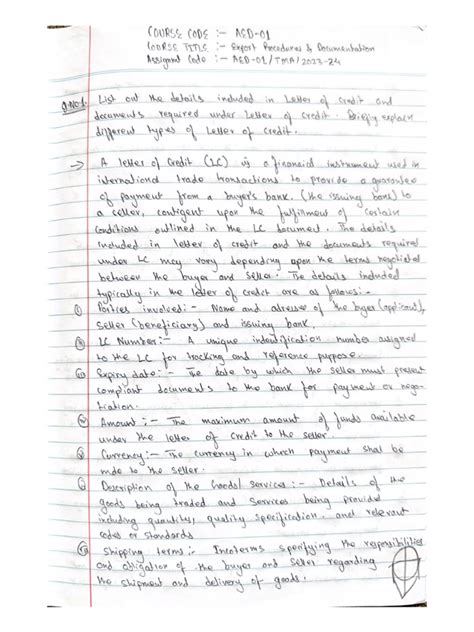 COURSE CODE :- AED-01
COURSE TITLE :- Export Procedures & Documentation
Assignment Code :- AED-01/TMA/2023-24
Q.No1. List out the details included in Letter of credit and
documents required under Letter of credit. Briefly explain
different types of Letter of credit.
→ A letter of Credit (LC) is a financial instrument used in
international trade transactions to provide a guarantee
of payment from a buyer's bank (the issuing bank) to
a seller, contigent upon the fulfillment of certain
conditions outlined in the LC document. The details
included in letter of credit and the documents required
under LC may vary depending upon the terms negotiated
between the buyer and seller. The details included
typically in the letter of credit are as follows:-
(i) Parties involved :- Name and adresse of the buyer (applicant),
seller (beneficiary) and issuing bank.
(ii) LC Number :- A unique indentification number assigned
to the LC for tracking and reference purpose.
(iii) Expiry date :- The date by which the seller must present
compliant documents to the bank for payment or nego-
tiation.
(iv) Amount :- The maximum amount of funds available
under the letter of credit to the seller.
(v) Currency :- The currency in which payment shall be
made to the seller.
(vi) Description of the Goods/services :- Details of the
goods being traded and services being provided
including quantites, quality specification, and relevant
codes or standards
(vii) Shipping terms :- Incoterms specifying the responsibilities
and obligation of the buyer and seller regarding
the shipment and delivery of goods.